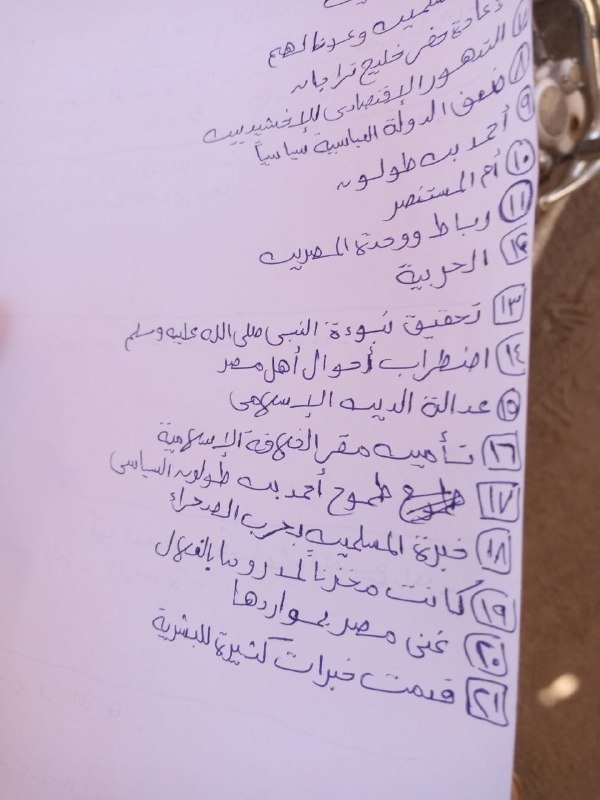 لمسلميه وعونا لهم
إعادة حفر خليج تراجان
التدهور الإقتصادى للإخشيدييه
٨ ضعف الدولة العباسية سياسياً
٩ أحمد به طولويه
١٠ أم المستنصر
١١ رباط ووحدة المصرييه
١٢ الحربية
١٣ تحقيق نبوءة النبى صلى الله عليه وسلم
١٤ اضطراب أحوال أهل مصر
١٥ عدالة الديه الإسلامى
١٦ تأميه مقر الخلافة الإسلامية
١٧ طموح أحمد به طولويه السياسى
١٨ خبرة المسلميه بحرب الصحراء
١٩ كانت مخزناً لمد روما بالغلال
٢٠ غنى مصر بمواردها
٢١ قدمت خبرات كثيرة للبشرية